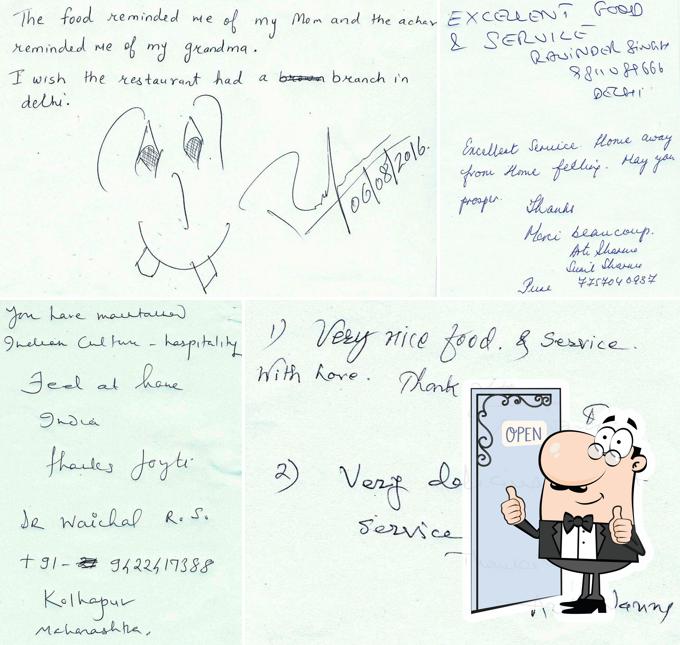 The food reminded me of my Mom and the achar
reminded me of my grandma.
I wish the restaurant had a branch in
delhi.
06/08/2016.
EXCELLENT FOOD
& SERVICE
RAVINDER SINGH
DELHI
Excellent Service Home away
from Home felling. May you
prosper.
Thanks
Merci beaucoup.
Sharma
Sunil Sharma
Pune 7757040937
You have maintained
Indian Culture - hospitality
Feel at home
India
Thanks Joyti
Dr Waichal R. S.
+91- 9422417388
Kolhapur
Maharashtra.
1) Very nice food. & Service.
With Love. Thank
2) Very
Service
OPEN